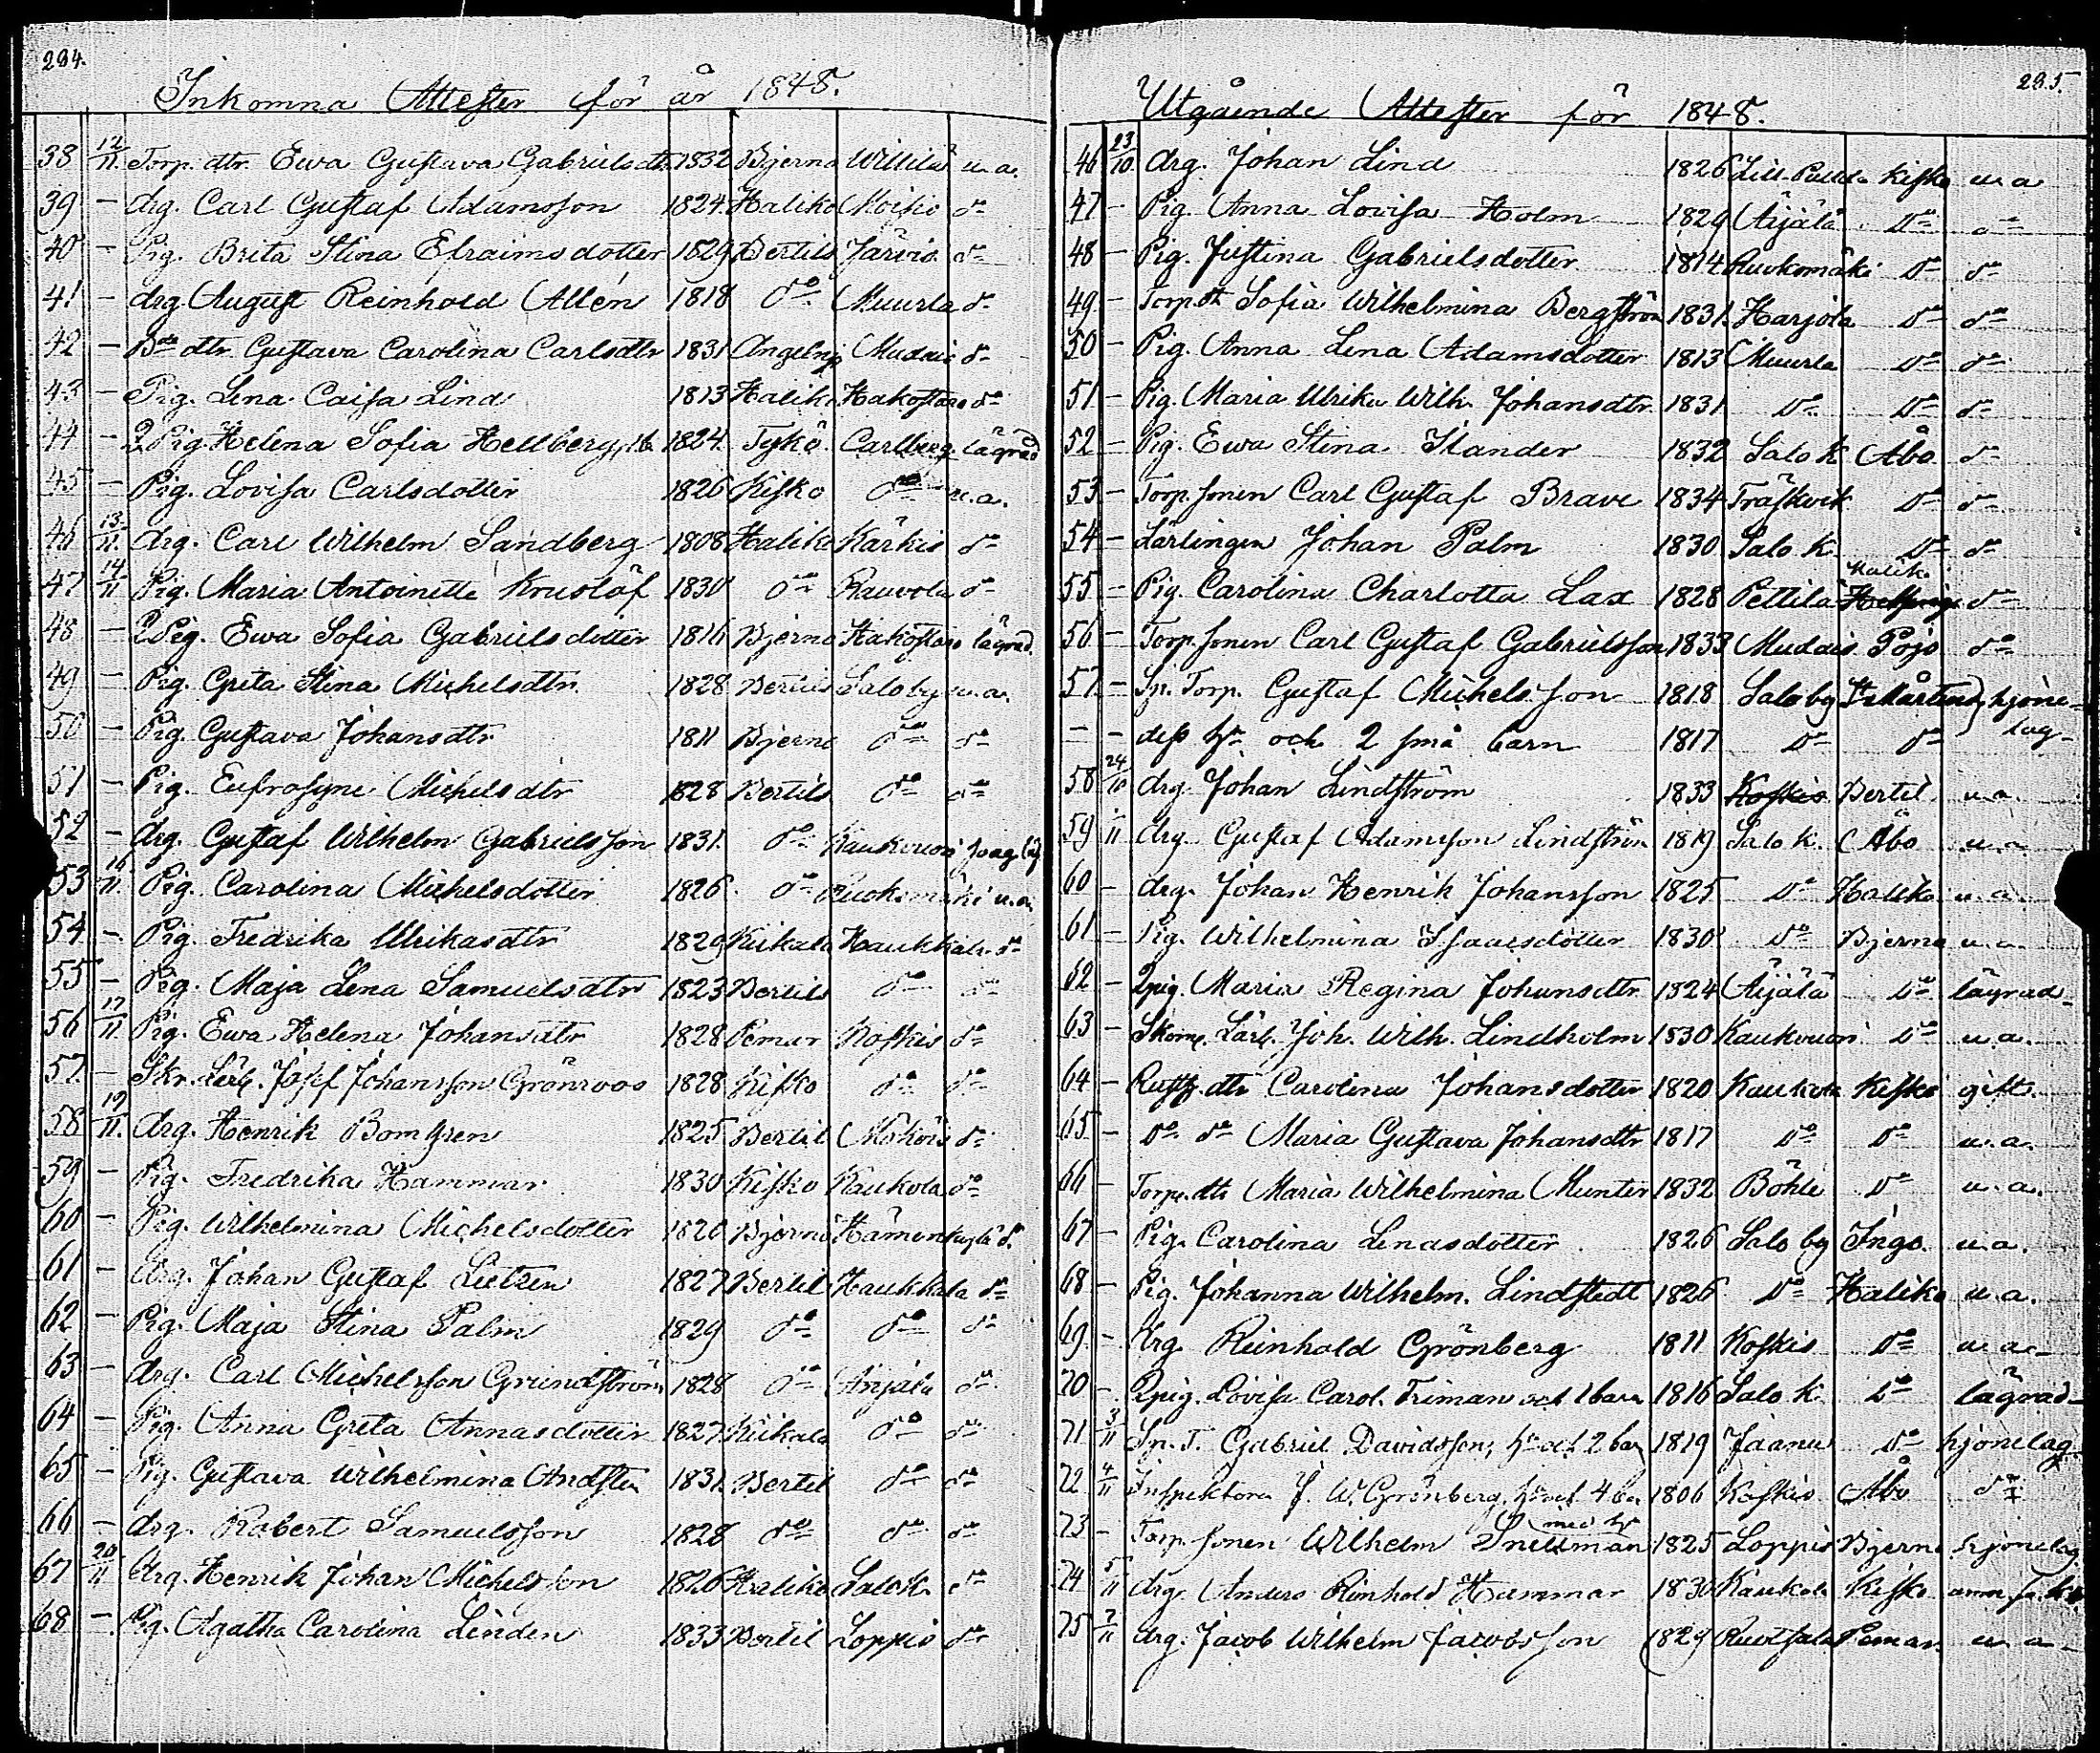 284.
Inkomna Attester för år 1848.
38 12/11. Torp. dtr. Ewa Gustava Gabrielsdtr 1832 Bjerno Willilä u.a.
39 – drg. Carl Gustaf Adamsson 1824 Haliko Moisio do
40 – Pig. Brita Stina Efraimsdotter 1829 Bertils Järvis do
41 – drg August Reinhold Allén 1818 do Muurla do
42 – Bde dtr. Gustava Carolina Carlsdtr 1831 Angelnj. Mudais do
43 – Pig. Lena Caisa Lind 1813 Haliko Hakostaro do
44 – 2 Pig. Helena Sofia Hellberg, 1 b. 1824 Tykö Carlberg lägrad
45 – Pig. Lovisa Carlsdotter 1826 Kisko do u.a.
46 13/11. drg. Carl Wilhelm Sandberg 1808 Haliko Kärkis do
47 14/11 Pig. Maria Antoinette Knuslöf 1830 do Rauvola do
48 – 2 Pig. Ewa Sofia Gabrielsdotter 1816 Bjerno Hakostaro lägrad.
49 – Pig. Greta Stina Michelsdtr. 1828 Bertils Salo by u.a.
50 – Pig. Gustava Johansdtr 1811 Bjerno do do
51 – Pig. Eufrosyne Michelsdtr 1828 Bertils do do
52 – drg. Gustaf Wilhelm Gabrielsson 1831. do Kaukvuori
53 16/11. Pig. Carolina Michelsdotter 1826 do Ruokomäki u.a.
54 – Pig. Fredrika Ulrikasdtr 1829 Kiikala Haukkala do
55 – Pig. Maja Lena Samuelsdtr 1823 Bertils do do
56 17/11. Pig. Ewa Helena Johansdtr 1828 Pemar Koskis do
57. – Skr. Lärl. Josef Johansson Grönroos 1828 Kisko do do
58 19/11. drg. Henrik Bomgren 1825 Bertil Mökois do
59 – Pig. Fredrika Hammar 1830 Kisko Kaukola do
60 – Pig. Wilhelmina Michelsdotter 1820 Bjerno Hämenkylä do
61 – drg. Johan Gustaf Lietzen 1827 Bertil Haukkala do
62 – Pig. Maja Stina Palm 1829 do do do
63 – drg. Carl Michelsson Grundström 1828 do Anjala do
64 – Pig. Anna Greta Annasdotter 1827 Kiikala do do
65 – Pig. Gustava Wilhelmina Andsten 1831. Bertil do do
66 – drg. Robert Samuelsson 1828 do do do
67 20/11 drg. Henrik Johan Michelsson 1826 Haliko Salo k. do
68 – Pig. Agatha Carolina Linden 1833 Bertil Loppis do
285.
Utgående Attester för 1848.
46 23/10 drg. Johan Lind 1826 Lill. Kisko u.a
47 – Pig. Anna Lovisa Holm 1829 Äijälä do do
48 – Pig. Justina Gabrielsdotter 1814 Ruokomäki do do
49 – Torp. dt Sofia Wilhelmina Bergström 1831. Harjola do do
50 – Pig. Anna Lena Adamsdotter 1813 Muurla do do
51 – Pig. Maria Ulrika Wilh. Johansdtr 1831 do do do
52 – Pig. Ewa Stina Stander 1832 Salo K Åbo do
53 – Torp. sonen Carl Gustaf Brave 1834 Träskvik do do
54 – Lärlingen Johan Palm 1830 Salo K. do do
55 – Pig. Carolina Charlotta Lax 1828 Pettilä Halik. do
56 – Torp. sonen Carl Gustaf Gabrielsson 1833 Mudais Pojo do
57. – Sp. Torp. Gustaf Michelsson 1818 Salo by St Mårtens hjone-
– – dess hu och 2 små barn 1817 do do lag-
58 24/10 drg. Johan Lindström 1833 Koskis Bertil. u.a.
59 /11 drg. Gustaf Adamsson Lindström 1819 Salo K. Åbo u.a.
60 – drg. Johan Henrik Johansson 1825 do Haliko u.a.
61 – Pig. Wilhelmina Isaacsdotter 1830 do Bjerno u.a.
62 – 2 pig. Maria Regina Johansdtr 1824 Äijälä do lägrad-
63 – Skom. Lärl. Joh. Wilh. Lindholm 1830 Kaukvuori do u.a.
64 – Rusth. dtr Carolina Johansdotter 1820 Kaukola Kisko gift.
65 – do do Maria Gustava Johansdtr 1817 do do u.a.
66 – Torp. dtr Maria Wilhelmina Munter 1832 Böhle do u.a.
67 – Pig. Carolina Lenasdotter 1826 Salo by Ingo. u.a.
68 – Pig. Johanna Wilhelm. Lindstedt 1826 do Haliko u.a.
69 – drg. Reinhold Grönberg 1811 Koskis do u.a.-
70 – 2 pig. Lovisa Carol. Friman och 1 barn 1816 Salo K. do lägrad-
71 3/11 Sp. T. Gabriel Davidsson, hu och 2 bar 1819 Jaanu do hjonelag
72 4/11 Inspektoren J. W. Grönberg, hu och 4 ba 1806 Koskis Åbo do
73 – Torp. sonen Wilhelm Snellman med hu 1825 Loppis Bjerno hjonelag
74 5/11 drg. Anders Reinhold Hammar 1830 Kaukola Kisko
75 7/11 drg. Jacob Wilhelm Jacobsson 1829 Ruotsala Pemar. u.a-